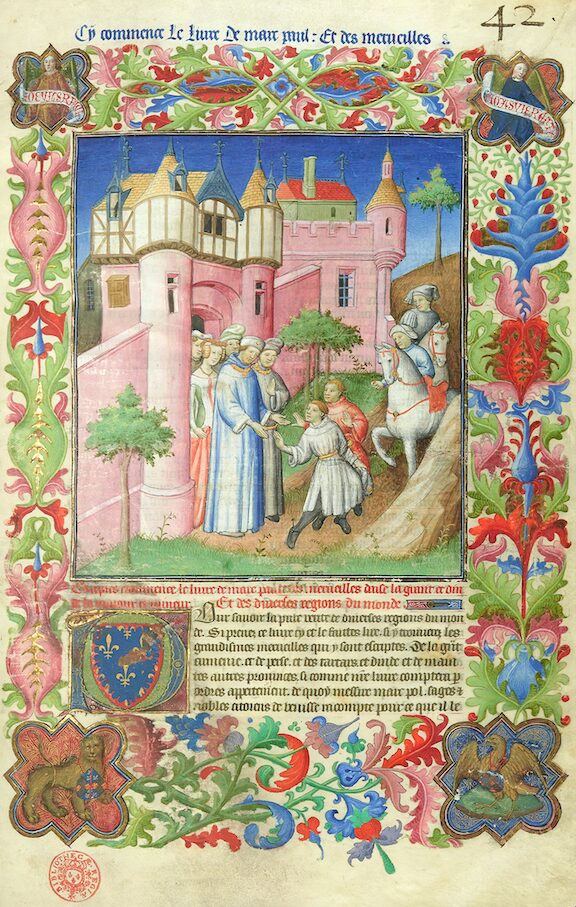 Cy commence le liure de marc paul : Et des merueilles
42.
commence le liure de marc paul et des merueilles daise la grant et din
de la maiour et mineur. Et des diuerses regions du monde
Pour sauoir la pure verite de diuerses regions du mon
de. Si prenez ce liure cy et le faites lire. si y trouuerez les
grandismes merueilles qui y sont escriptes. De la grāt
armenie. et de perse. et des tartars et dinde. et de maint
tes autres prouinces. si comme nr̄e liure comptera p
ordres apertement. de quoy messire marc pol. sages et
nobles citoiens de venisse racompte pour ce que il le
BIBLIOTHECÆ REGIÆ